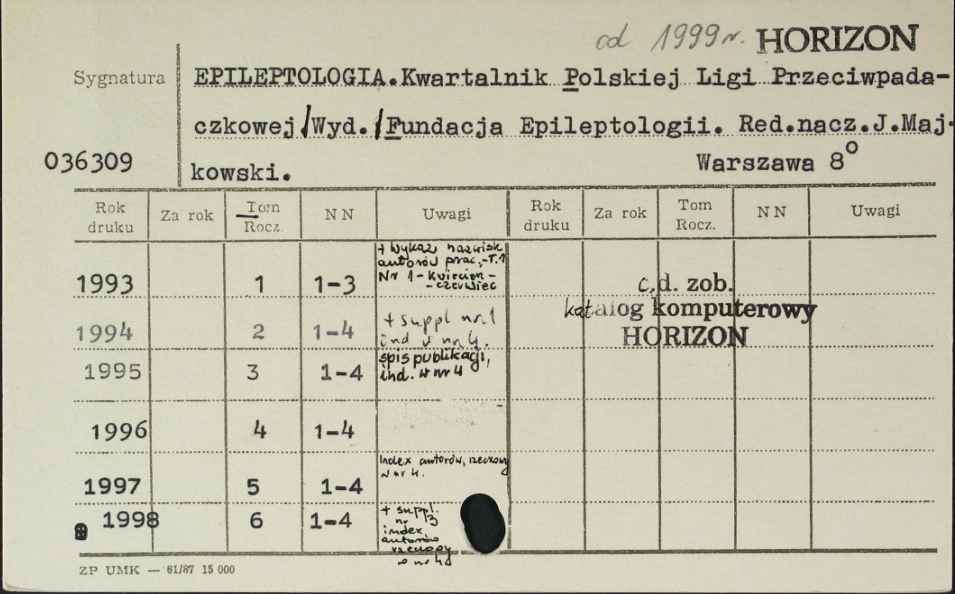 od 1999 r. HORIZON
Sygnatura EPILEPTOLOGIA.Kwartalnik Polskiej Ligi Przeciwpada-
czkowej/Wyd./Fundacja Epileptologii. Red.nacz.J.Maj-
036309 kowski. Warszawa 8°
Rok druku Za rok Tom Rocz. NN Uwagi Rok druku Za rok Tom Rocz. NN Uwagi
+ Wykaz nazwisk
autorów prac,-T.1
1993 1 1-3 Nr 1-kwiecień-
-czerwiec
c.d. zob.
katalog komputerowy
HORIZON
1994 2 1-4 + suppl nr.1
ind w nr 4.
spis publikacji,
1995 3 1-4 ind. w nr 4
1996 4 1-4
Index autorów, rzeczowy
w nr 4.
1997 5 1-4
1998 6 1-4 + suppl.
nr 3
index.
autorów
rzeczowy
w nr 4
ZP UMK — 61/87 15 000